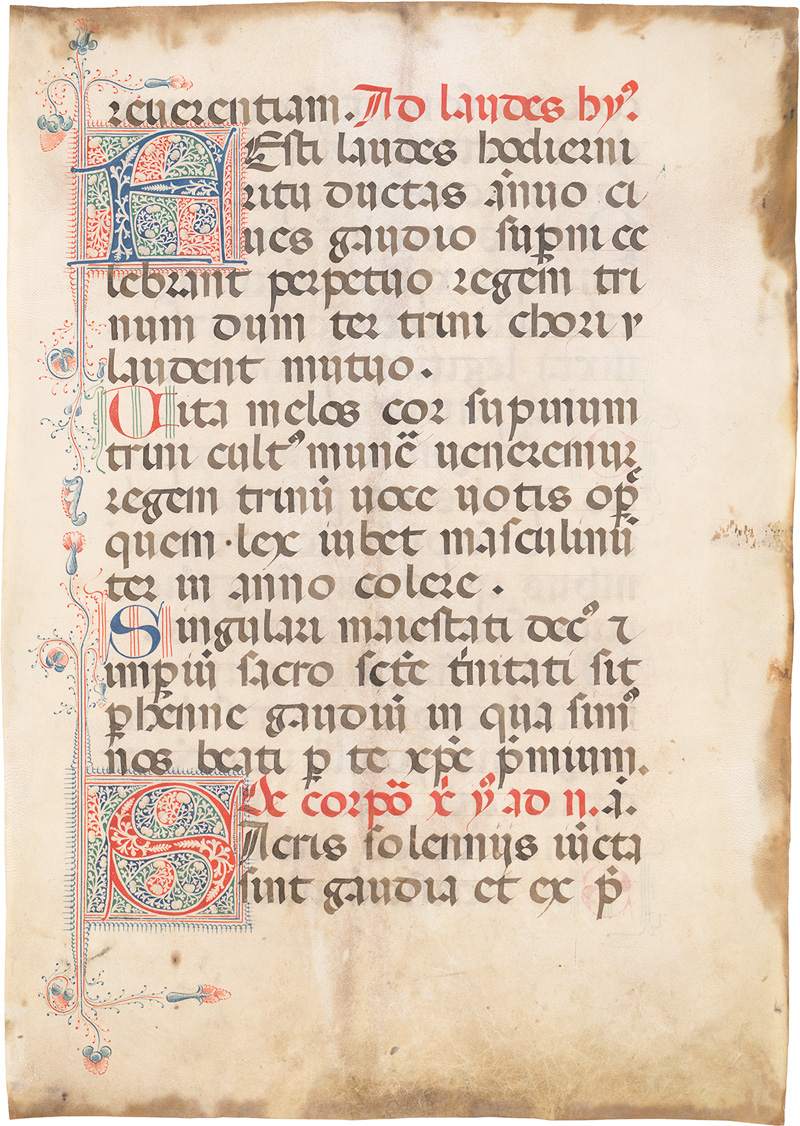 reuerentiam. Ad laudes hyꝰ.
FEsti laudes hodierni
ritu ductas ānuo ci
ues gaudio suꝑni ce
lebrant perpetuo regem tri
num dum ter trini chori y
laudent mutuo.
Uita melos cor supinum
trini cultꝰ munē ueneremur
regem trinū uoce uotis oꝑe
quem lex iubet masculinū
ter in anno colere.
Singulari maiestati decꝰ ⁊
imꝑiū sacro scte t̄nitati sit
ꝑhenne gaudiū in qua simꝰ
nos beati ꝑ te xp̄e p̄mium.
De corpō x̄ yꝰ ad n. a̅.
SAcris solenniȷs uicta
sint gaudia et ex p̄